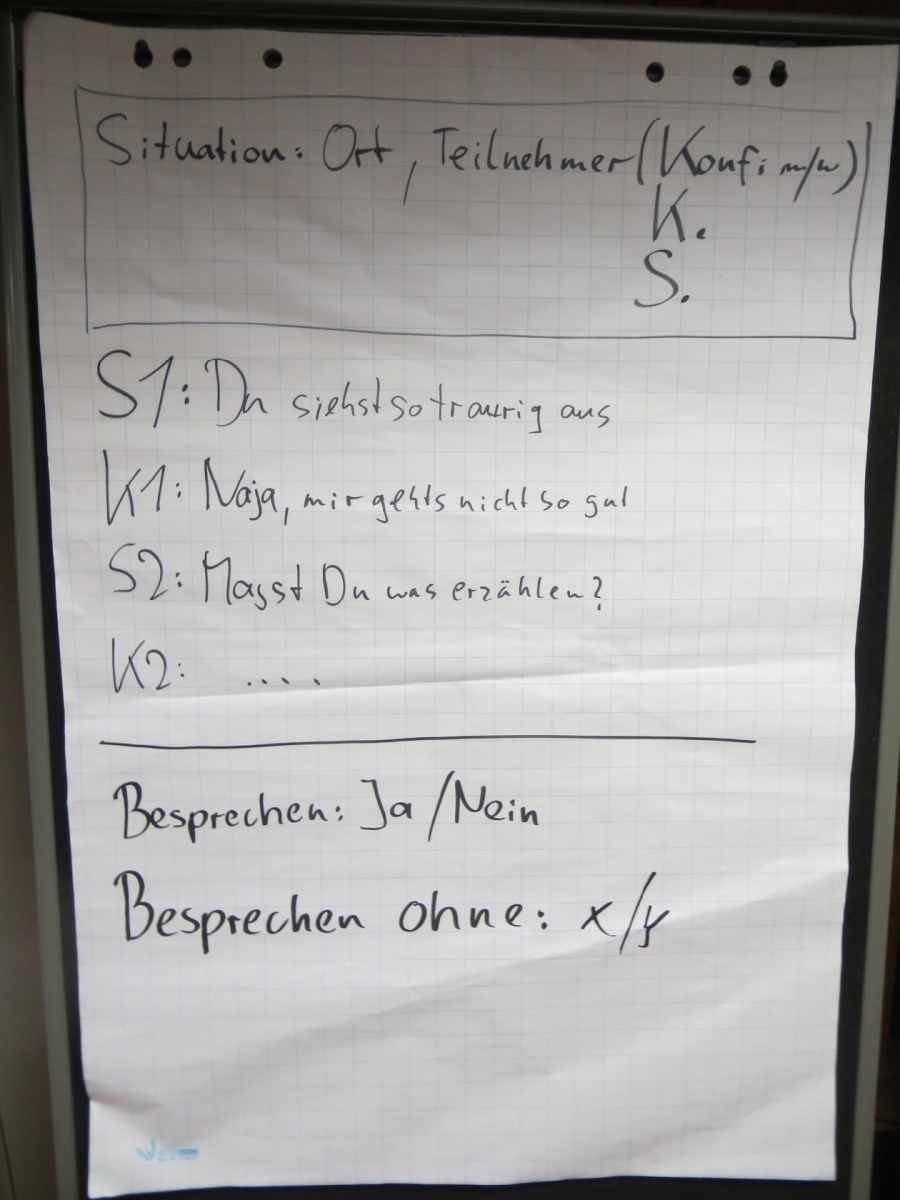 Situation: Ort, Teilnehmer (Konfi m/w)
K.
S.
S1: Du siehst so traurig aus
K1: Naja, mir gehts nicht so gut
S2: Magst Du was erzählen?
K2: ....
Besprechen: Ja/Nein
Besprechen ohne: x/y